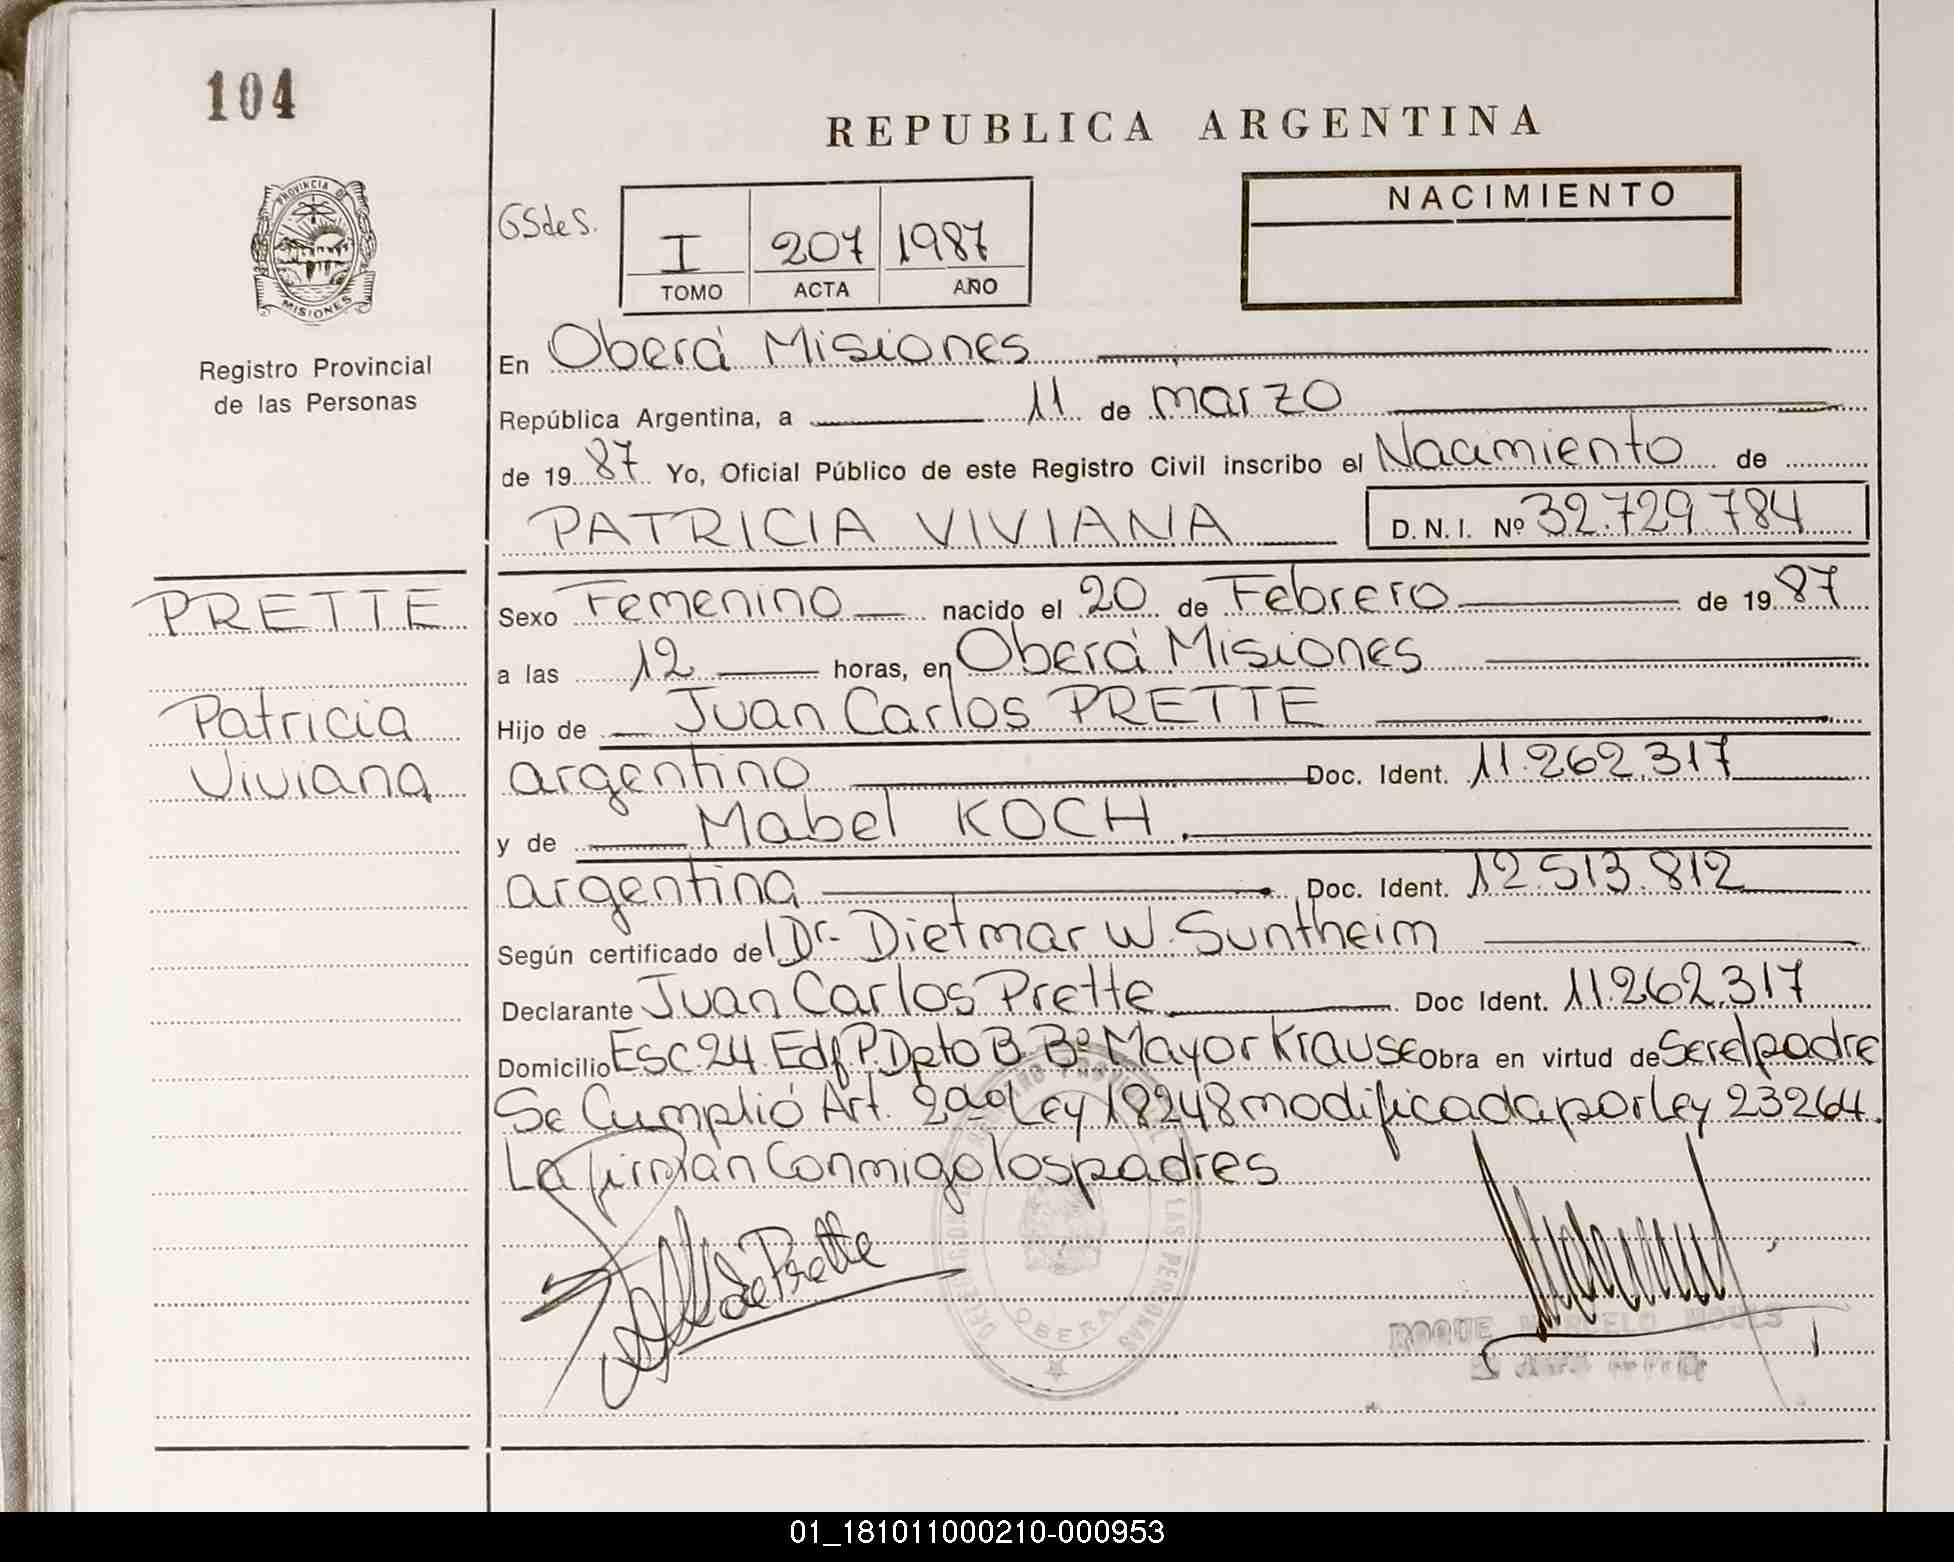 104
REPUBLICA ARGENTINA
PROVINCIA DE
MISIONES
Registro Provincial
de las Personas
GSdeS.
I 207 1987
TOMO ACTA AÑO
NACIMIENTO
En Oberá Misiones
República Argentina, a 11 de marzo
de 1987 Yo, Oficial Público de este Registro Civil inscribo el Nacimiento de
PATRICIA VIVIANA D.N.I. Nº 32.729.784
PRETTE
Patricia
Viviana
Sexo Femenino nacido el 20 de Febrero de 1987
a las 12 horas, en Oberá Misiones
Hijo de Juan Carlos PRETTE
argentino Doc. Ident. 11.262.317
y de Mabel KOCH.
argentina Doc. Ident. 12.513.812
Según certificado del Dr. Dietmar W. Suntheim
Declarante Juan Carlos Prette Doc Ident. 11.262.317
Domicilio Esc.24 Edf P. Dpto B Bº Mayor Krause Obra en virtud de Ser el padre
Se Cumplió Art. 2 Ley 18248 modificada por Ley 23264.
La firman Conmigo los padres
de Prette
LAS PERSONAS
OBERA
ROQUE MARCELO
01_181011000210-000953